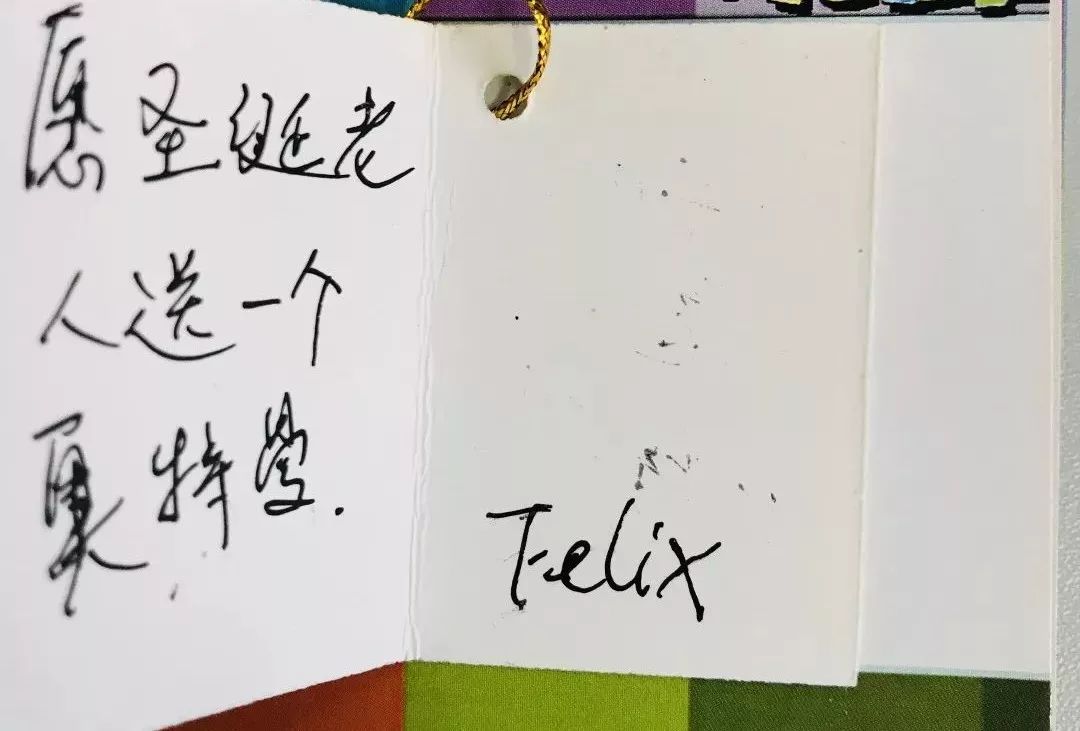 愿圣诞老
人送一个
Felix